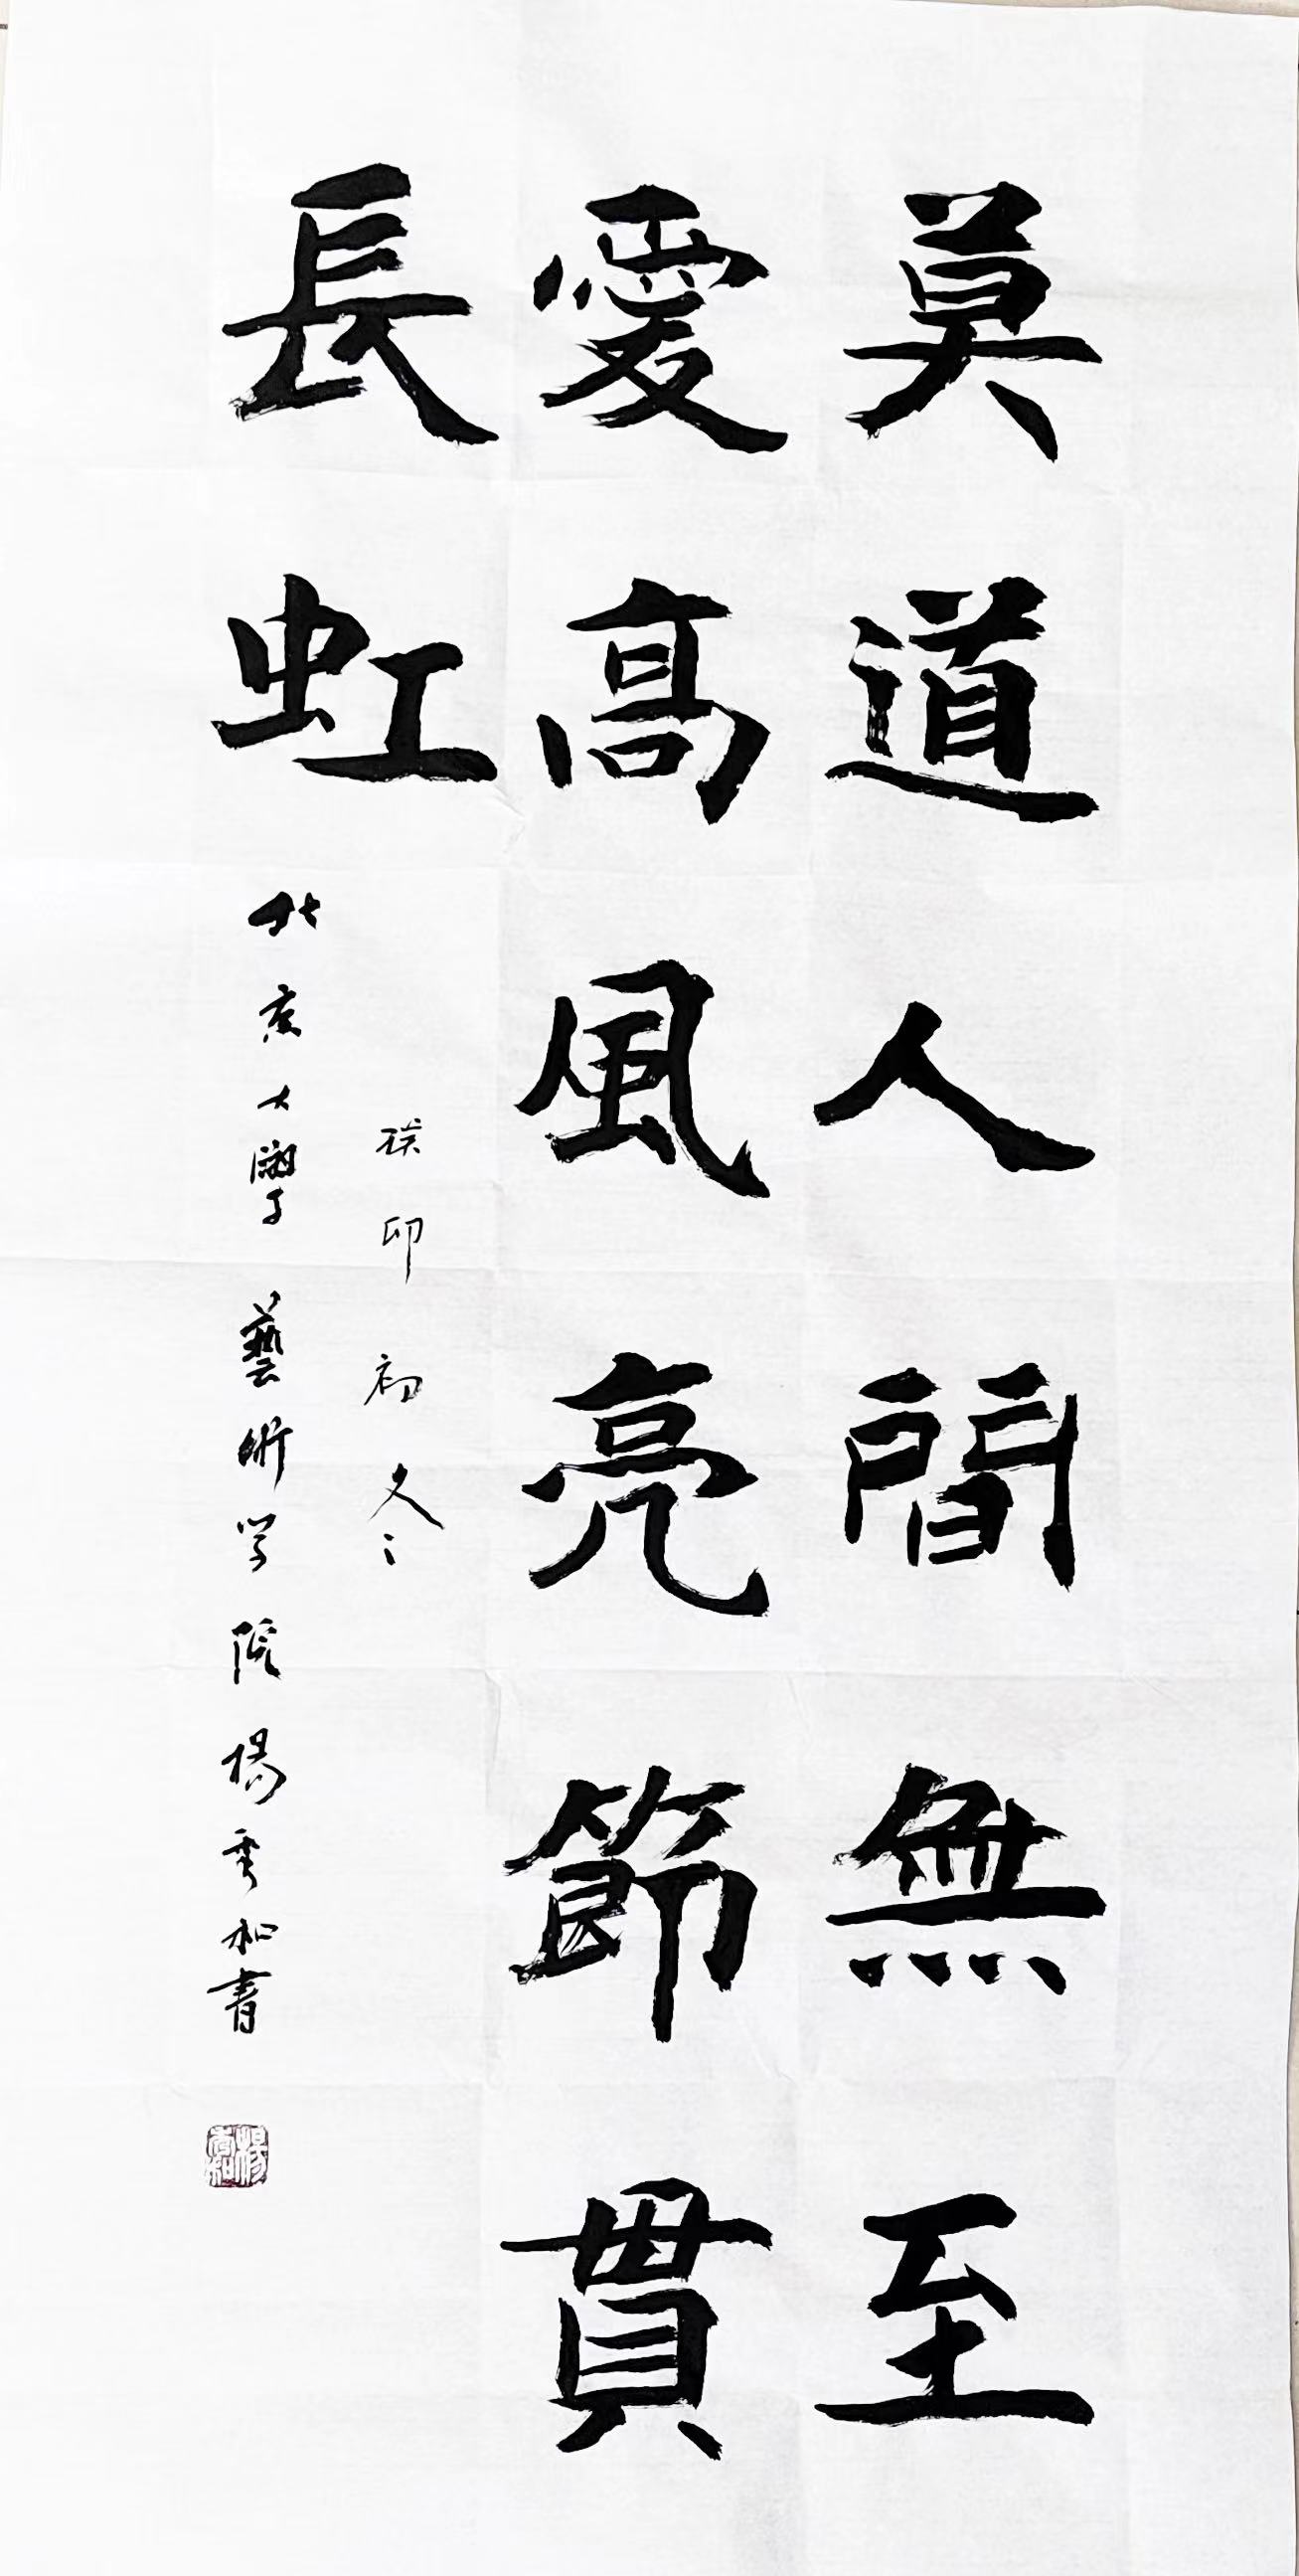 莫道人間無至
愛高風亮節貫
長虹
癸卯初冬
北京大學藝術学院楊秀和書